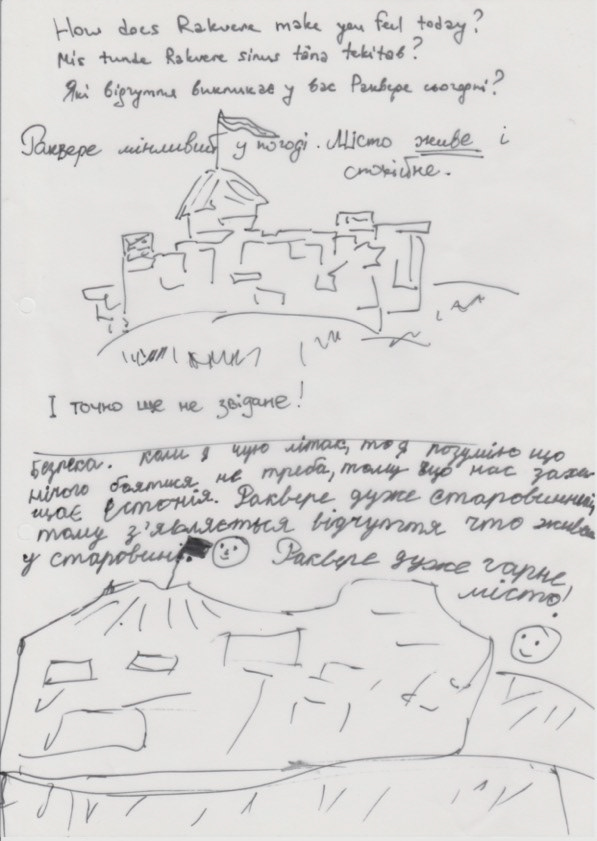 How does Rakvere make you feel today?
Mis tunde Rakvere sinus täna tekitab?
Які відчуття викликає у вас Раквере сьогодні?
Раквере мінливий у погоді. Місто живе і
спокійне.
І точно ще не звідане!
Безпека. Коли я чую літак, то я розумію що
нічого боятися не треба, тому що нас захи
щає Естонія. Раквере дуже старовинний,
тому з'являється відчуття что живеш
у старовині. Раквере дуже гарне
місто!